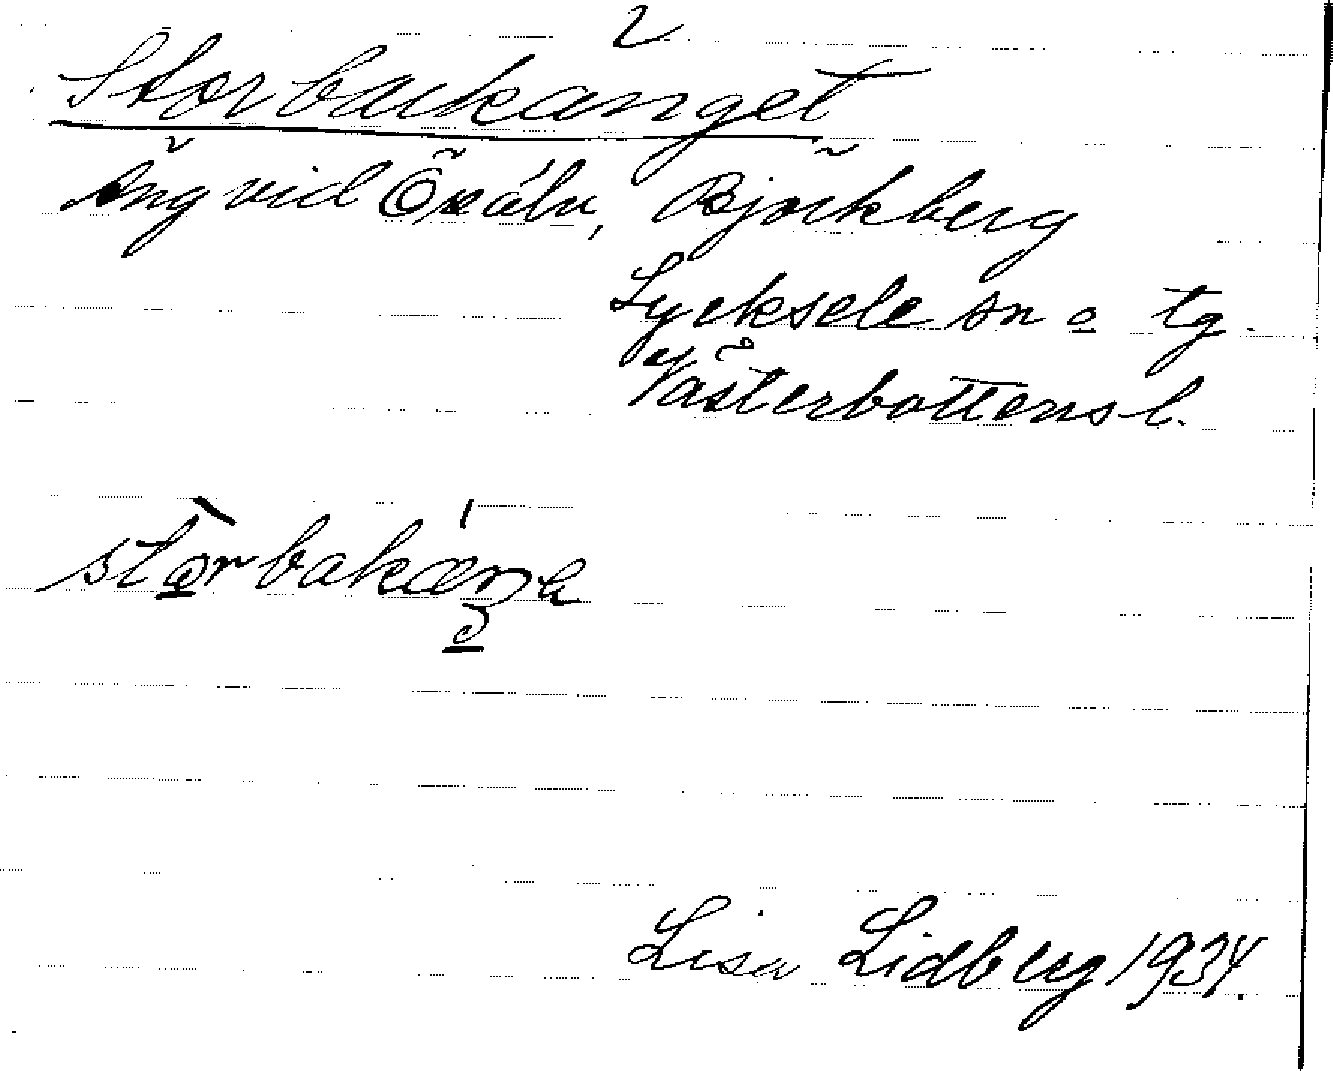 2
Storbackänget
Äng vid Öreälv, Björkberg
Lycksele sn o tg.
Västerbottens l.
Lisa Lidberg 1934.